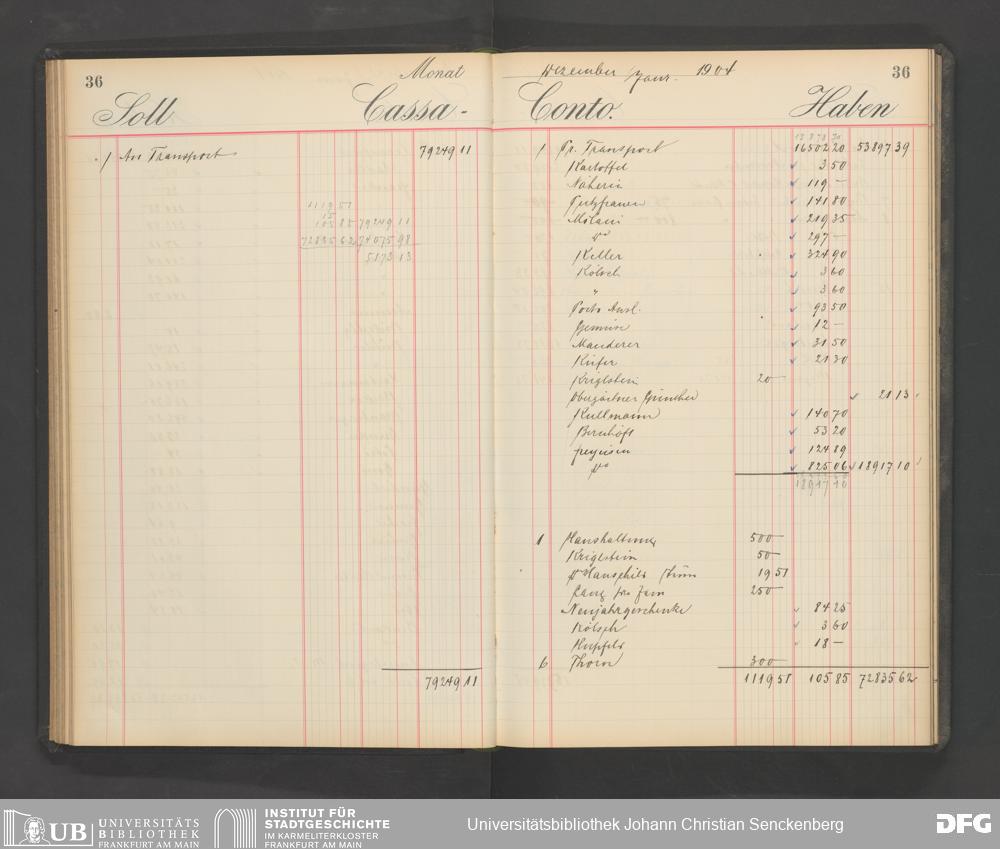 36
Monat
Soll
Cassa-
1 An Transport 79249 11
1119 51
15
105 85 79249 11
72835 62 74075 98
5173 13
79249 11
Dezember / Janr. 1904
36
Conto.
Haben
1 Pr. Transport 16502 20 53897 39
Kartoffel 3 50
Näherin 119 —
Putzfrauen 141 80
Milani 219 35
do 297 —
Keller 324 90
Kölsch 3 60
" 3 60
Porto Ausl. 93 50
Gemüse 12 —
Manderer 31 50
Küfer 21 30
Kriglstein 20 —
Obergärtner Günther 21 13
Kullmann 140 70
Bernhöft 53 20
124 89
do 825 06 18917 10
18917 10
1 Haushaltung 500 —
Kriglstein 50 —
19 51
250 —
Neujahrgeschenke 84 25
Kölsch 3 60
Hupfeld 18 —
6 Thorn 300 —
1119 51 105 85 72835 62
UB
UNIVERSITÄTS
BIBLIOTHEK
FRANKFURT AM MAIN
INSTITUT FÜR
STADTGESCHICHTE
IM KARMELITERKLOSTER
FRANKFURT AM MAIN
Universitätsbibliothek Johann Christian Senckenberg
DFG